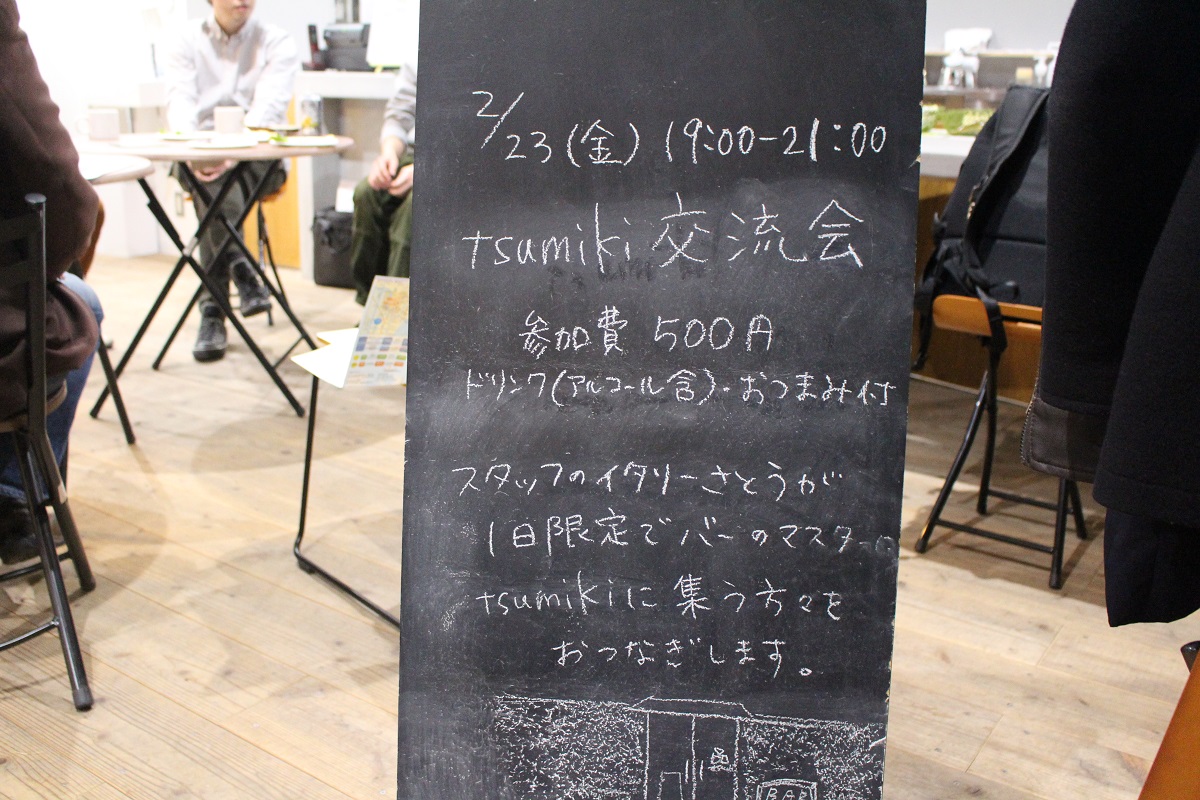 2/23(金) 19:00-21:00
tsumiki 交流会
参加費 500円
ドリンク(アルコール含)・おつまみ付
スタッフのイタリーさとうが
1日限定でバーのマスター。
tsumikiに集う方々を
おつなぎします。
BAR